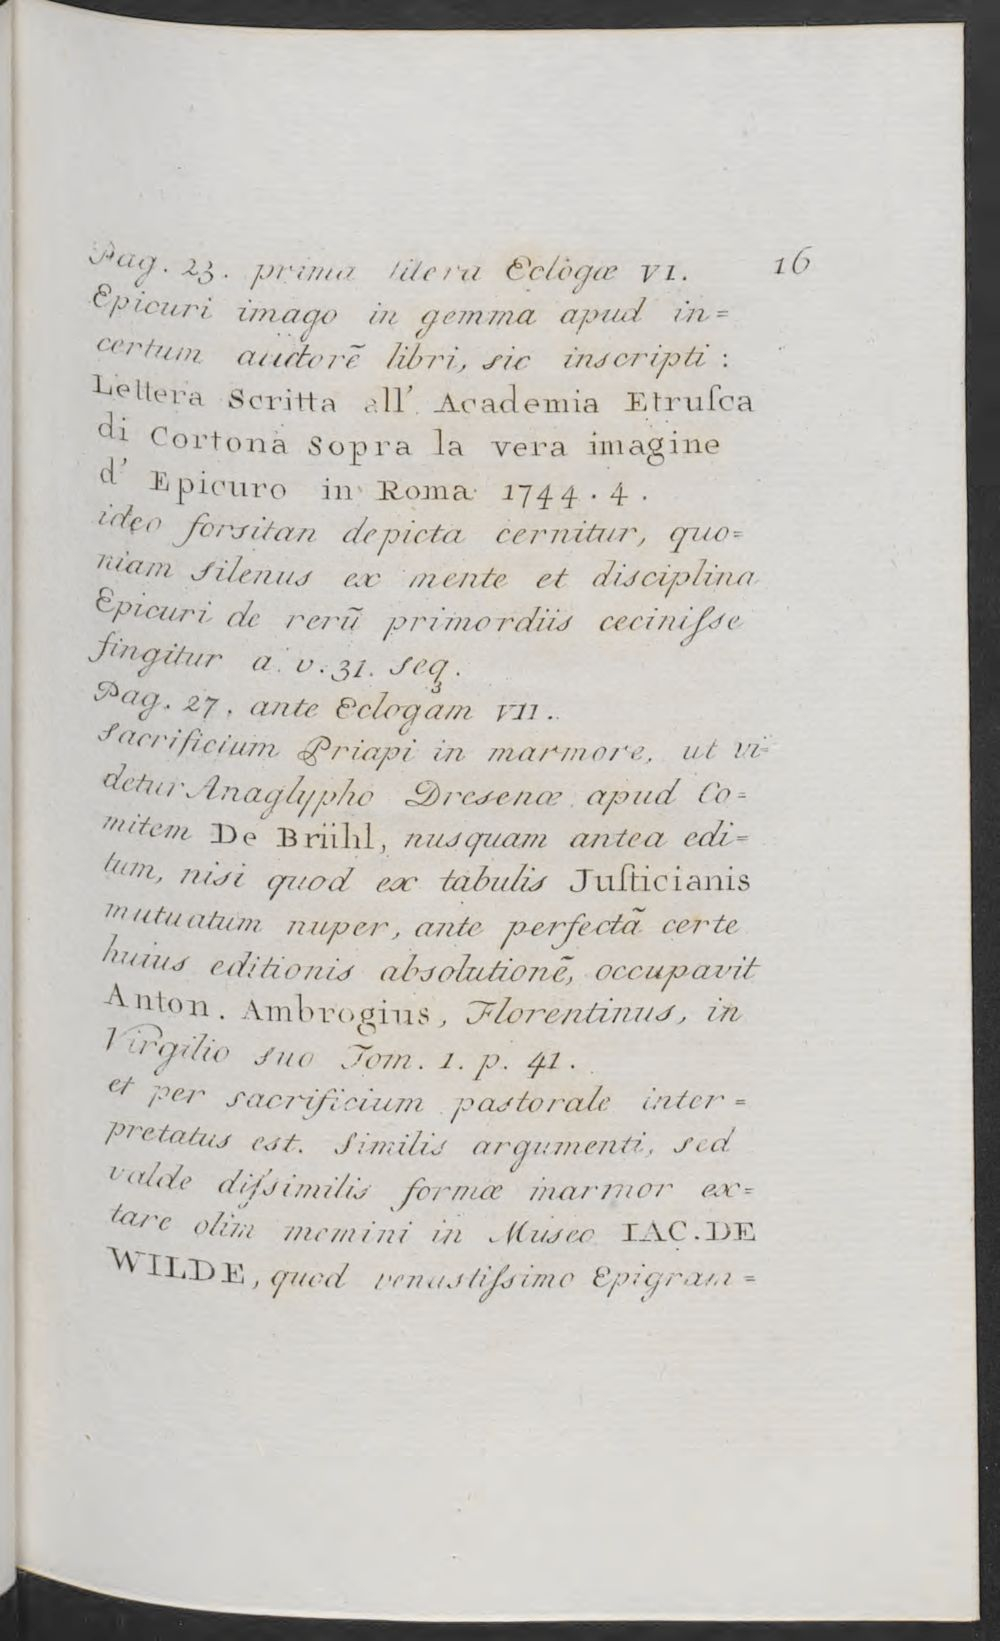 Pag. 23. prima litera Eclogæ VI. 16
Epicuri imago in gemma apud in=
certum auctorẽ libri, sic inscripti :
Lettera Scritta all' Academia Etruſca
di Cortona Sopra la vera imagine
d' Epicuro in Roma 1744 . 4 .
ideo forsitan depicta cernitur, quo=
niam Silenus ex mente et disciplina
Epicuri de rerũ primordiis ceciniſse
fingitur a. v. 31. seqꝫ.
Pag. 27. ante Eclogam VII.
Sacrificium Priapi in marmore, ut vi=
detur Anaglypho Dresenæ apud Co=
mitem De Brühl, nusquam antea edi=
tum, nisi quod ex tabulis Juſticianis
mutuatum nuper, ante perfectã certe
huius editionis absolutionẽ, occupavit
Anton. Ambrogius, Florentinus, in
Virgilio suo Tom. 1. p. 41.
et per sacrificium pastorale inter=
pretatus est. Similis argumenti, sed
valde diſsimilis formæ marmor ex=
tare olim memini in Museo IAC. DE
WILDE, quod venustiſsimo Epigram=